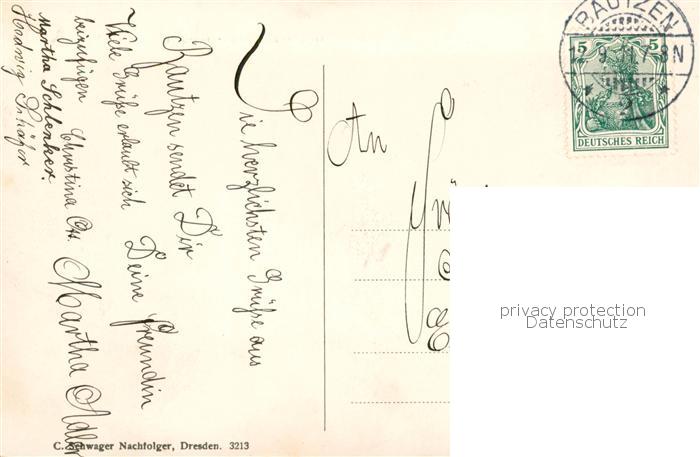 Die herzlichsten Grüße aus
Bautzen sendet Dir
Deine Freundin
Martha Adler
Viele Grüße erlaubt sich
beizufügen Christina Ott.
Martha Schlenker.
Hedwig Schäfer
An
C. Schwager Nachfolger, Dresden. 3213
BAUTZEN
12.9.11.7-8N
* 2 *
5 5
DEUTSCHES REICH
privacy protection
Datenschutz